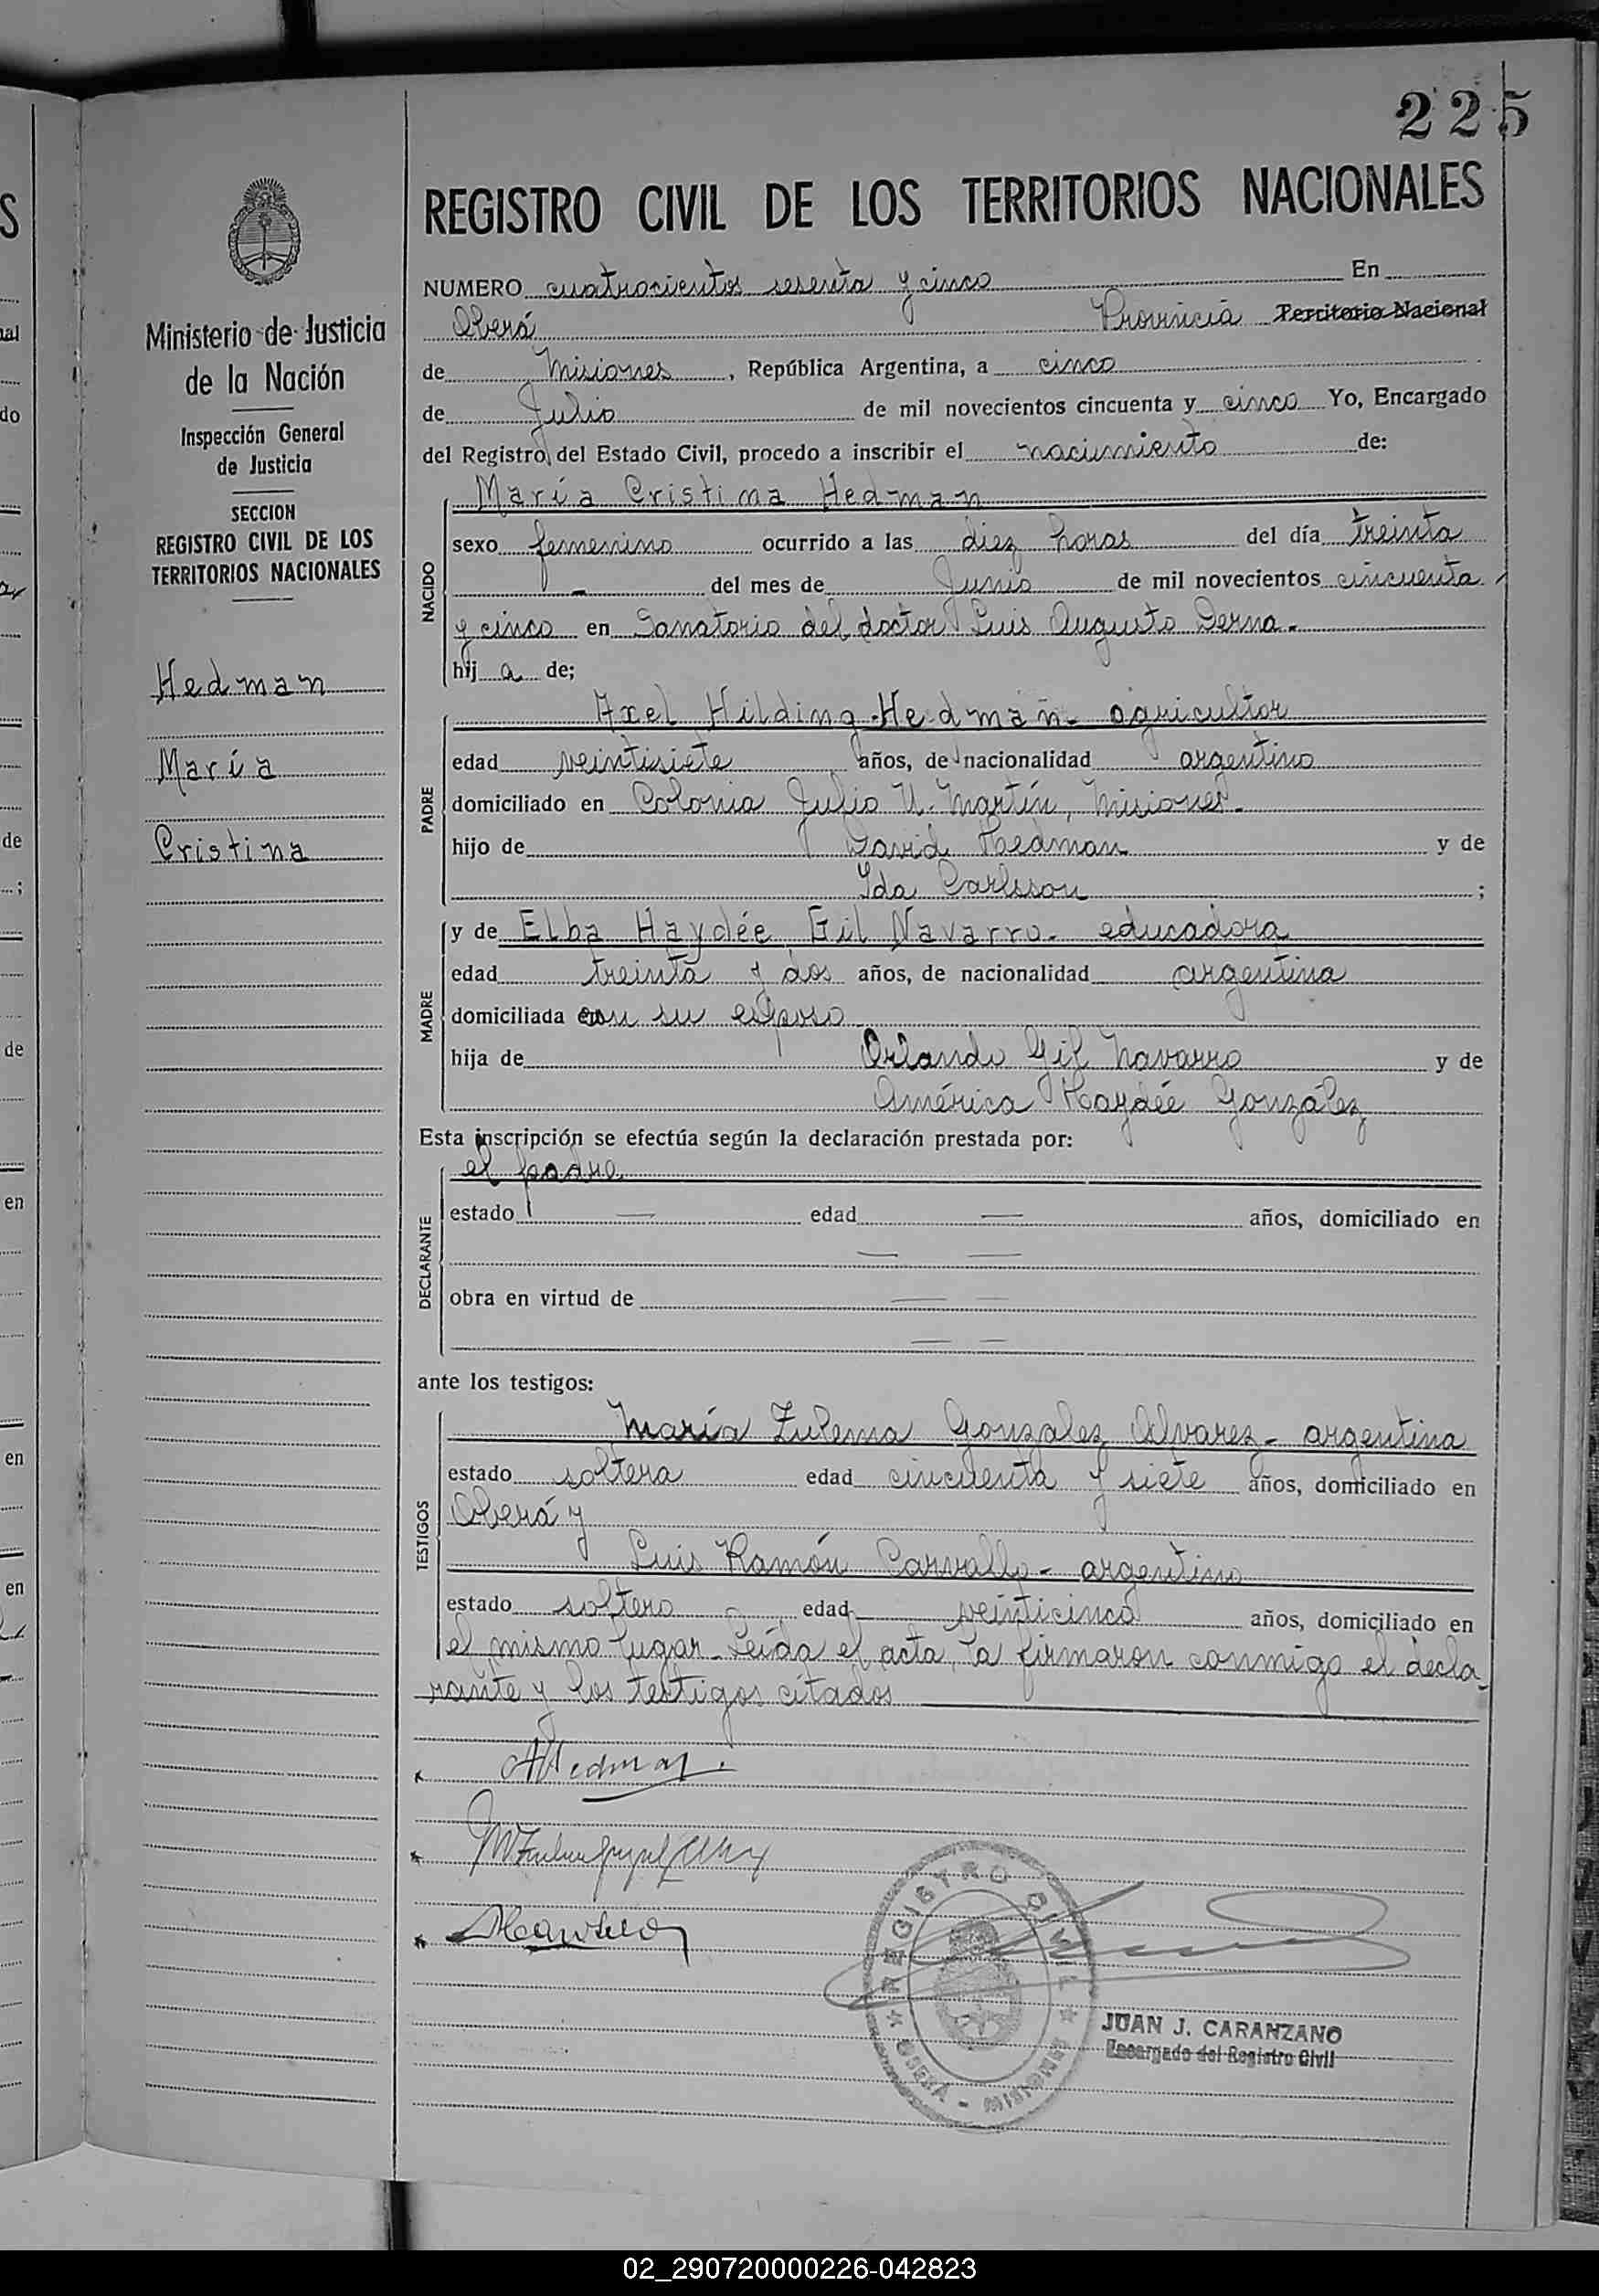 225
REGISTRO CIVIL DE LOS TERRITORIOS NACIONALES
Ministerio de Justicia
de la Nación
Inspección General
de Justicia
SECCION
REGISTRO CIVIL DE LOS
TERRITORIOS NACIONALES
Hedman
María
Cristina
NUMERO cuatrocientos sesenta y cinco En
Oberá Provincia Territorio Nacional
de Misiones, República Argentina, a cinco
de Julio de mil novecientos cincuenta y cinco Yo, Encargado
del Registro del Estado Civil, procedo a inscribir el nacimiento de:
NACIDO
María Cristina Hedman
sexo femenino ocurrido a las diez horas del día treinta
- del mes de Junio de mil novecientos cincuenta
y cinco en Sanatorio del doctor Luis Augusto Derna.-
hij a de;
PADRE
Axel Hilding Hedman - agricultor
edad veintisiete años, de nacionalidad argentino
domiciliado en Colonia Julio U. Martín, Misiones.-
hijo de David Hedman y de
Ida Carlsson ;
MADRE
y de Elba Haydée Gil Navarro - educadora
edad treinta y dos años, de nacionalidad argentina
domiciliada con su esposo
hija de Orlando Gil Navarro y de
América Haydée González
Esta inscripción se efectúa según la declaración prestada por:
DECLARANTE
el padre
estado — edad — años, domiciliado en
— —
obra en virtud de — —
— —
ante los testigos:
TESTIGOS
María Zulema Gonzalez Alvarez - argentina
estado soltera edad cincuenta y siete años, domiciliado en
Oberá y
Luis Ramón Carvallo - argentino
estado soltero edad veinticinco años, domiciliado en
el mismo lugar. Leída el acta, la firmaron conmigo el decla-
rante y los testigos citados
AHedman.
REGISTRO CIVIL
OBERÁ - MISIONES
JUAN J. CARANZANO
Encargado del Registro Civil
02_290720000226-042823